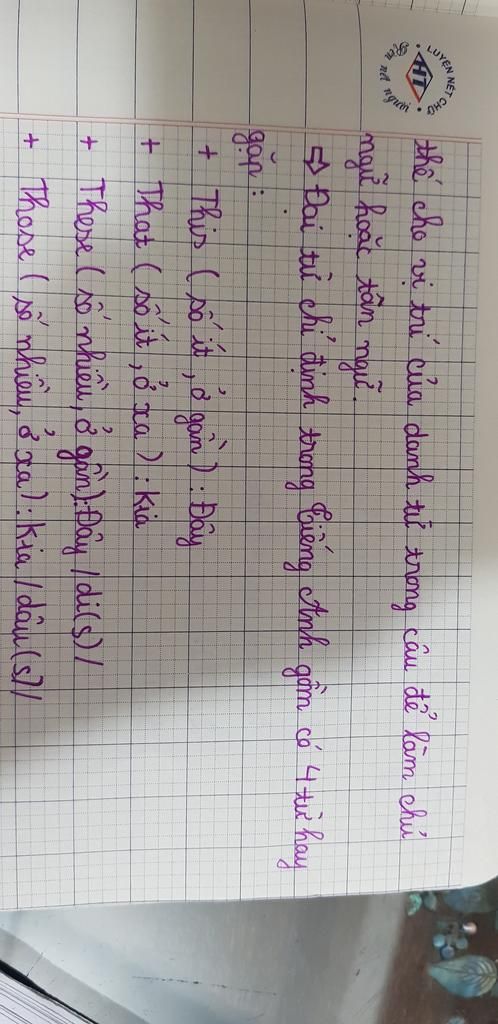 LUYỆN NÉT CHỮ
HT
Rèn nết người
thế cho vị trí của danh từ trong câu để làm chủ
ngữ hoặc tân ngữ.
⇨ Đại từ chỉ định trong Tiếng Anh gồm có 4 từ hay
gặp:
+ This ( số ít, ở gần ): Đây
+ That ( số ít, ở xa ): Kia
+ These ( số nhiều, ở gần): Đây /di(s)/
+ Those ( số nhiều, ở xa): Kia /dâu(s)/